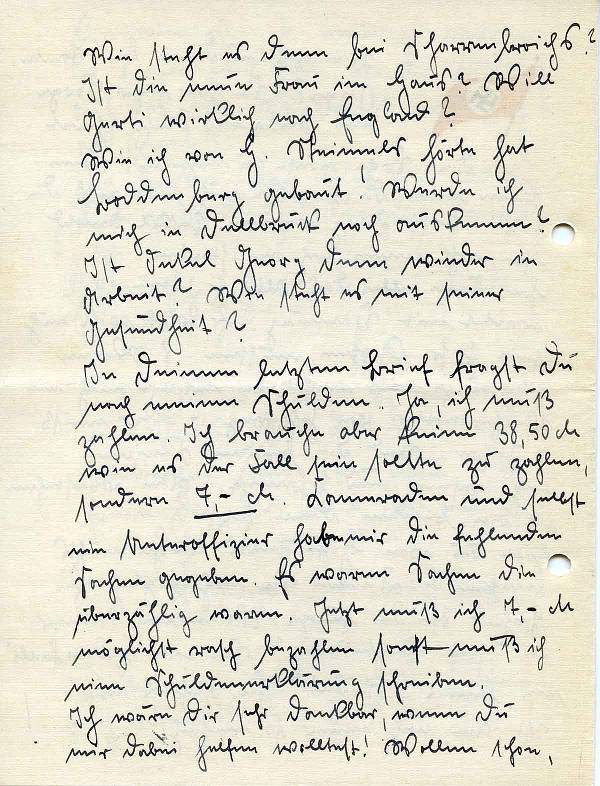 Wie steht es denn bei Scharrenbroichs?
Ist die neue Frau im Haus? Will
Gerti wirklich nach England?
Wie ich von H. Steimels hörte hat
Boddenberg gebaut! Werde ich
mich in Dellbrück noch auskennen?
Ist Onkel Georg denn wieder in
Arbeit? Wie steht es mit seiner
Gesundheit?
In Deinem letzten Brief fragst Du
nach meinen Schulden. Ja, ich muß
zahlen. Ich brauche aber keine 38,50 M
wie es der Fall sein sollte zu zahlen,
sondern 7,- M. Kameraden und selbst
ein Unteroffizier habe mir die fehlenden
Sachen gegeben. Es waren Sachen die
überzählig waren. Jetzt muß ich 7,- M
möglichst rasch bezahlen sonst muß ich
eine Schuldenerklärung schreiben.
Ich wäre Dir sehr dankbar, wenn Du
mir dabei helfen wolltest! Wollen schon,